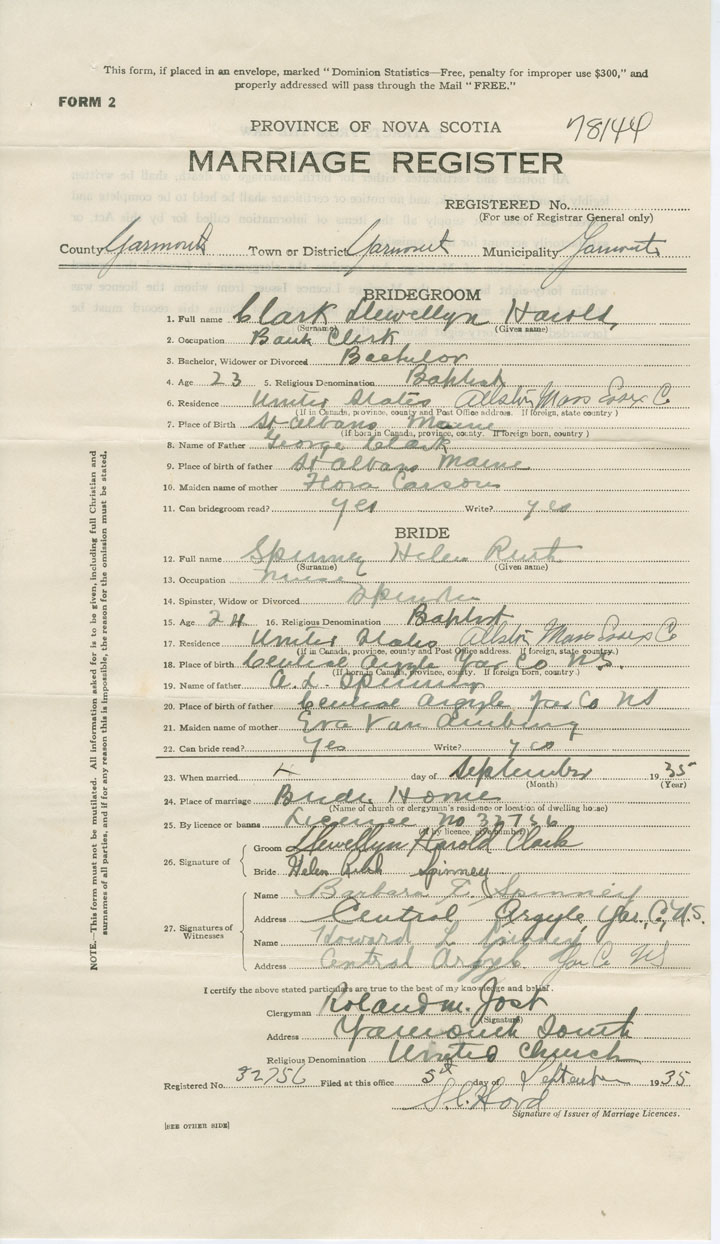 This form, if placed in an envelope, marked "Dominion Statistics—Free, penalty for improper use $300," and
properly addressed will pass through the Mail "FREE."
FORM 2
PROVINCE OF NOVA SCOTIA 78144
MARRIAGE REGISTER
REGISTERED No.
(For use of Registrar General only)
County Yarmouth Town or District Yarmouth Municipality Yarmouth
BRIDEGROOM
1. Full name Clark Llewellyn Harold
(Surname) (Given name)
2. Occupation Bank Clerk
3. Bachelor, Widower or Divorced Bachelor
4. Age 23 5. Religious Denomination Baptist
6. Residence United States Allston Mass Essex C
(If in Canada, province, county and Post Office address. If foreign, state country)
7. Place of Birth St Albans Maine
(If born in Canada, province, county. If foreign born, country)
8. Name of Father George Clark
9. Place of birth of father St Albans Maine
10. Maiden name of mother Flora Carson
11. Can bridegroom read? yes Write? yes
BRIDE
12. Full name Spinney Helen Ruth
(Surname) (Given name)
13. Occupation Nurse
14. Spinster, Widow or Divorced Spinster
15. Age 24 16. Religious Denomination Baptist
17. Residence United States Allston Mass Essex C
(If in Canada, province, county and Post Office address. If foreign, state country.)
18. Place of birth Central Argyle Yar Co N.S.
(If born in Canada, province, county. If foreign born, country.)
19. Name of father A. L. Spinney
20. Place of birth of father Central Argyle Yar Co NS
21. Maiden name of mother Eva Van
22. Can bride read? Yes Write? yes
23. When married 4 day of September 1935
(Month) (Year)
24. Place of marriage Bride Home
(Name of church or clergyman's residence or location of dwelling house)
25. By licence or banns Licence no 32756
(If by licence, give number)
26. Signature of
Groom Llewellyn Harold Clark
Bride Helen Ruth Spinney
27. Signatures of Witnesses
Name Barbara E. Spinney
Address Central Argyle, Yar. C, N.S.
Name Howard L.
Address Central Argyle Yar C NS
I certify the above stated particulars are true to the best of my knowledge and belief.
Clergyman Roland M. Jost
(Signature)
Address Yarmouth South
Religious Denomination United Church
Registered No. 32756 Filed at this office 5th day of September 1935
Signature of Issuer of Marriage Licences.
[SEE OTHER SIDE]
NOTE.—This form must not be mutilated. All information asked for is to be given, including full Christian and
surnames of all parties, and if for any reason this is impossible, the reason for the omission must be stated.